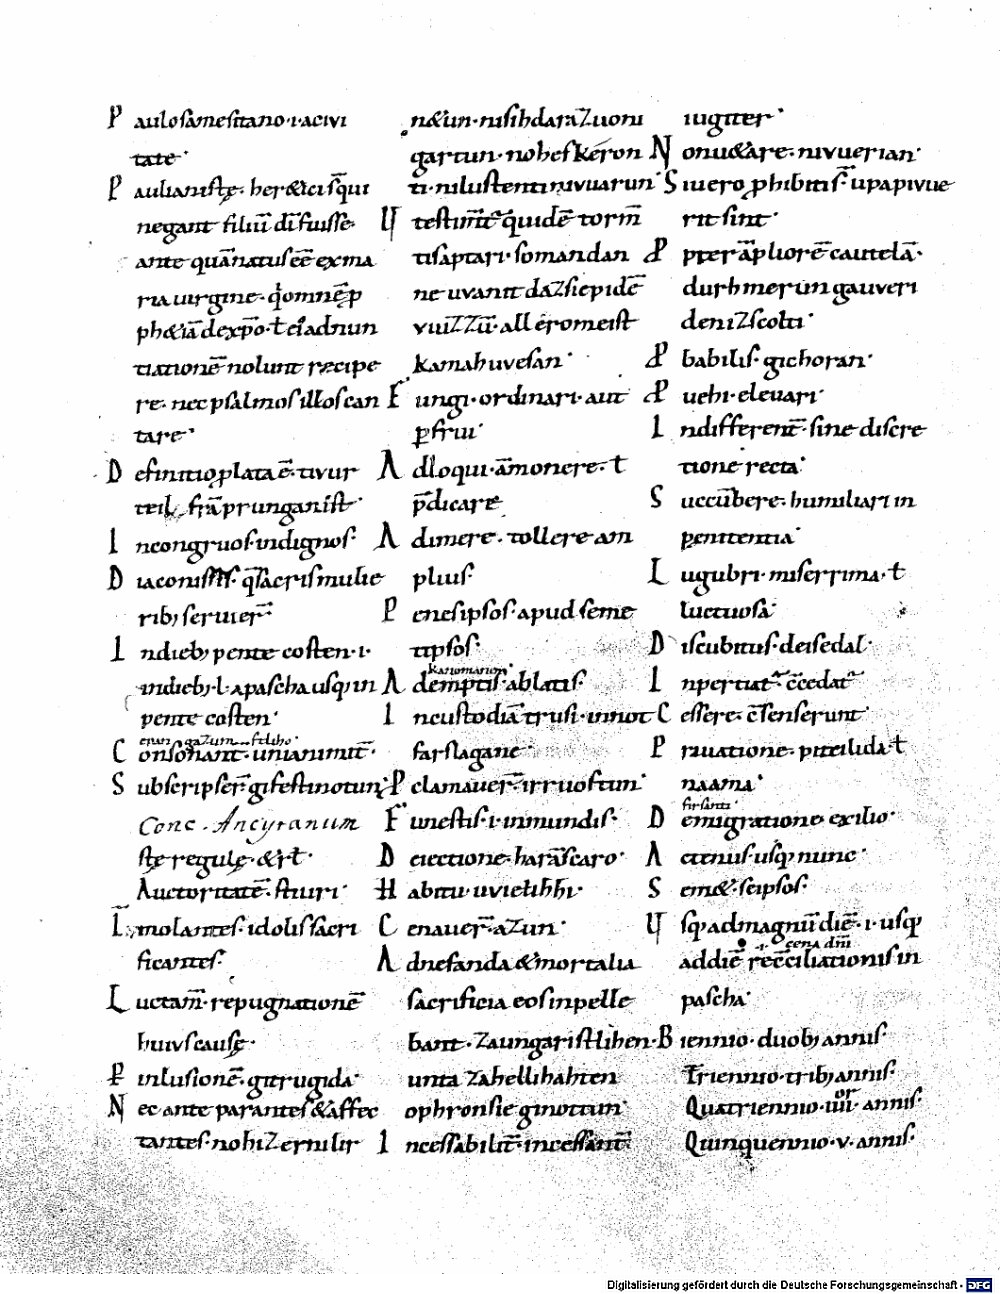 P aulosamesitano·i·acivi
tate·
P aulianistę·her&ici sq̄ui
negant filiū dī fuisse·
ante quā natus eē ex ma
ria uirgine·q̇ omnē p̄
ph&iā dexp̄o·ł ei adnun
tiationē nolunt recipe
re·nec psalmos illos can
tare·
D efinitio plata ē·
teil frā prungan ist·
I ncongruos·indignos·
D iaconissas·q̄ sacris mulie
rib; seruier̄·
I n dieb; pente costen·i·
in dieb;·l·a pascha usq; in
pente costen·
C onsonant·unianimit̄·
S ubscripser̄·gifestinotun
Conc. Ancyranum
stę regulę·&rł·
Auctoritatē·stiuri·
I molantes·idolis sacri
ficantes·
L uctam̄·repugnationē
huius causę·
P inlusionē·gitrugida·
N ec ante parantes &affec
tantes·nohi Zernilir
n&un·nisih daraZuoni
gartun·nohes keron
ti·ni lustenti nivuarun·
U testim̄t·quidē torm̄
tis aptari·so man dan
ne uvanit daz siepidē
vuiZZū·all ero meist
kamahuvesan·
F ungi·ordinari·aut
p̄frui·
A dloqui·āmonere·ł
p̄dicare
A dimere·tollere am
plius·
P enes ipsos·apud seme
tipsos·
kanomanon
A demptis·ablatis·
I n custodiā trusi·in not
farslagane·
P clamauer̄·irruoftun·
F unestis·i·inmundis·
D eiectione·harāscaro·
H abitu uvietihhi·
C enauer̄·aZun·
A d nefanda &mortalia
sacrificia eos inpelle
bant·Zaungaristlihen·
unta Zahellihahten
ophron sie ginottun·
I ncessabilit̄·incessant̄·
iugiter·
N onu&are·nivuerian·
S iuero phibitis·upapivue
rit sint·
P pter āpliorē cautelā·
durh merun gauveri
deniZscolti·
P babilis·gichoran·
P uehi·eleuari·
I ndifferent̄·sine discre
tione recta·
S uccūbere·humiliari in
penitentia·
L ugubri·miserrima·ł
luctuosa·
D iscubitus·
I
essere·c̄senserunt·
P riuatione·piteilida·ł
naama·
firsanti
D emigratione exilio·
A ctenus·usq; nunc·
S em&·seipsos·
U sq; ad magnū diē·i·usq;
·i· cena dn̄i
ad diē rec̄ciliationis in
pascha·
B iennio·duob; annis·
Triennio·trib; annis·
Quatriennio·iiii· annis·
Quinquennio·v·annis·
Digitalisierung gefördert durch die Deutsche Forschungsgemeinschaft - DFG